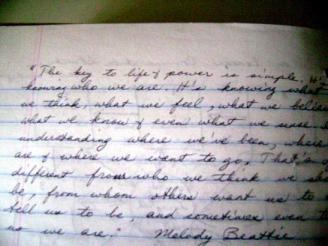 "The key to life & power is simple. It's
knowing who we are. It's knowing what
we think, what we feel, what we believe
what we know & even what we sense
understanding where we've been, where
are & where we want to go, That's
different from who we think we sh
be, from whom others want us to
tell us to be, and sometimes even
us we are." Melody Beattie